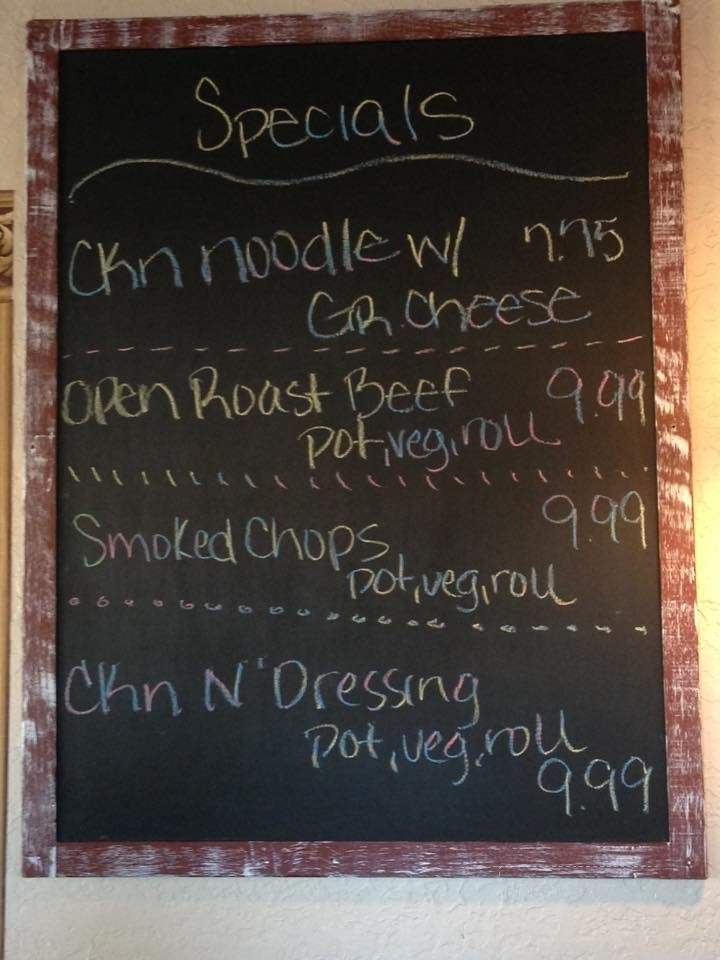 Specials
Ckn noodle w/ 7.75
GR. Cheese
Open Roast Beef 9.99
pot, veg, roll
Smoked Chops 9.99
pot, veg, roll
Ckn N' Dressing
pot, veg, roll
9.99